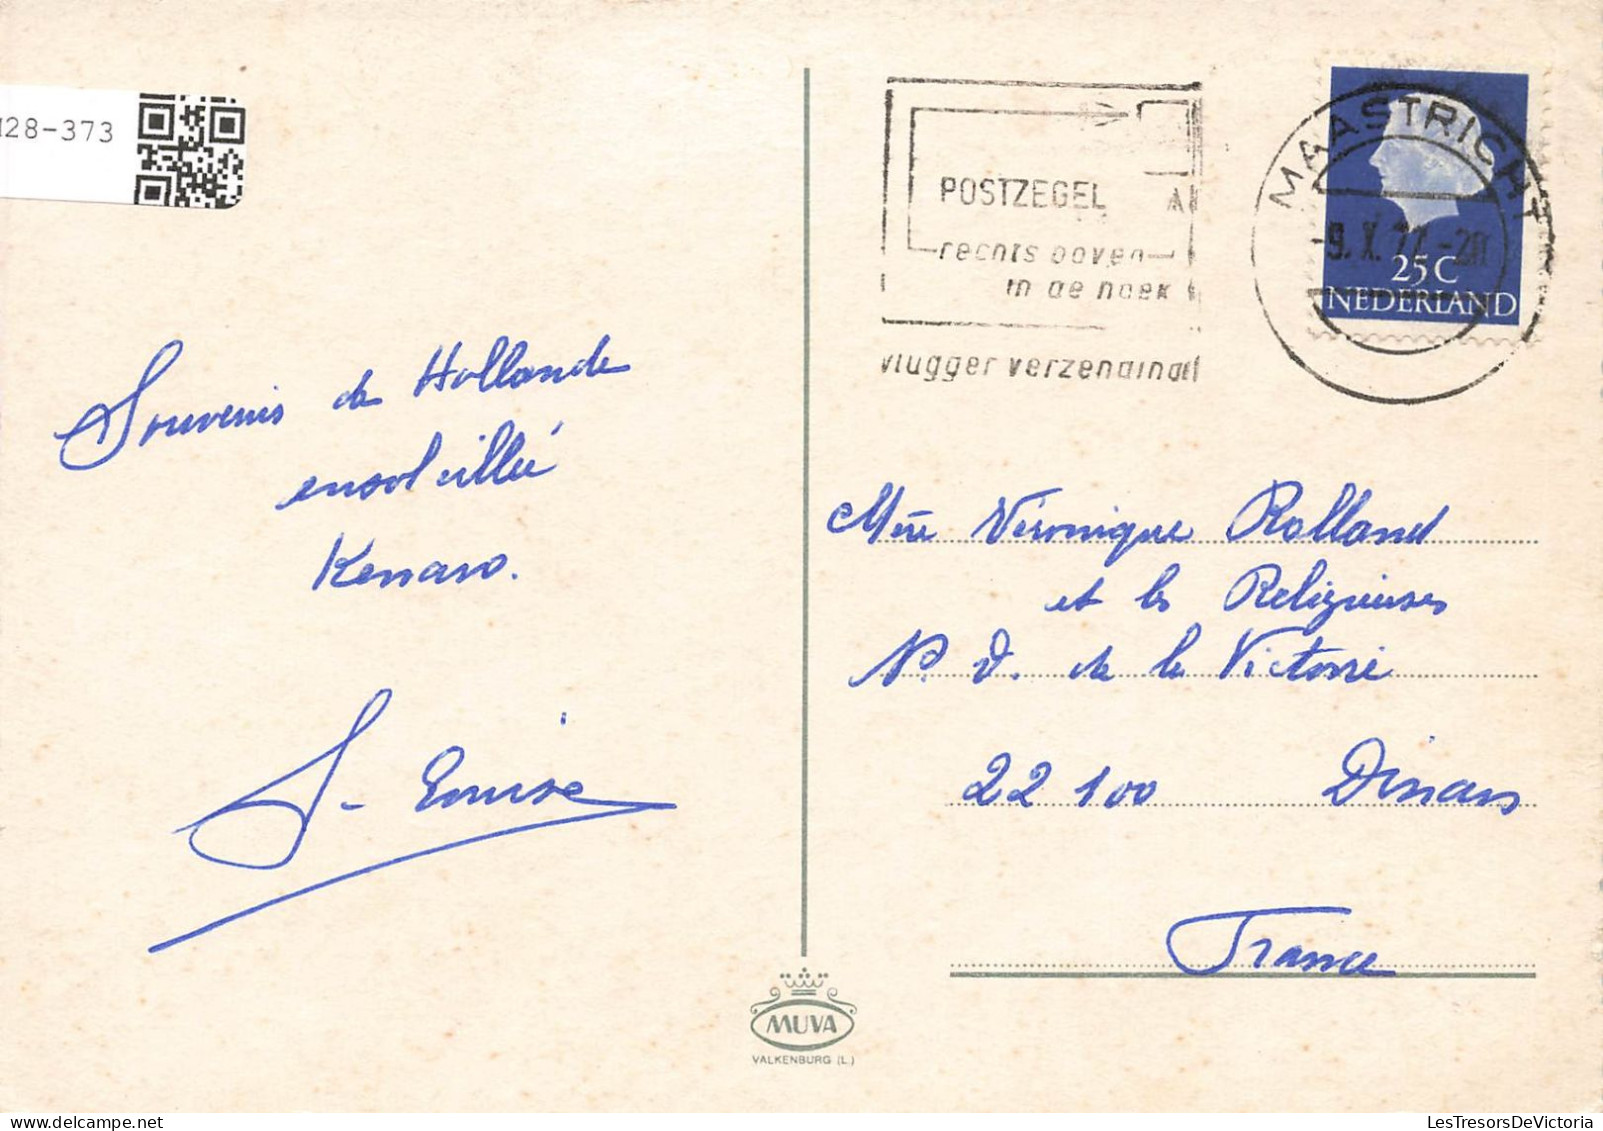 128-373
POSTZEGEL
rechts boven
in de hoek
vlugger verzending
MAASTRICHT
-9.X.77.-20
25C
NEDERLAND
Souvenir de Hollande
ensoleillée
Mère Véronique Rolland
et les Religieuses
N. D. de la Victoire
22 100 Dinan
France
MUVA
VALKENBURG (L.)
LesTresorsDeVictoria.com